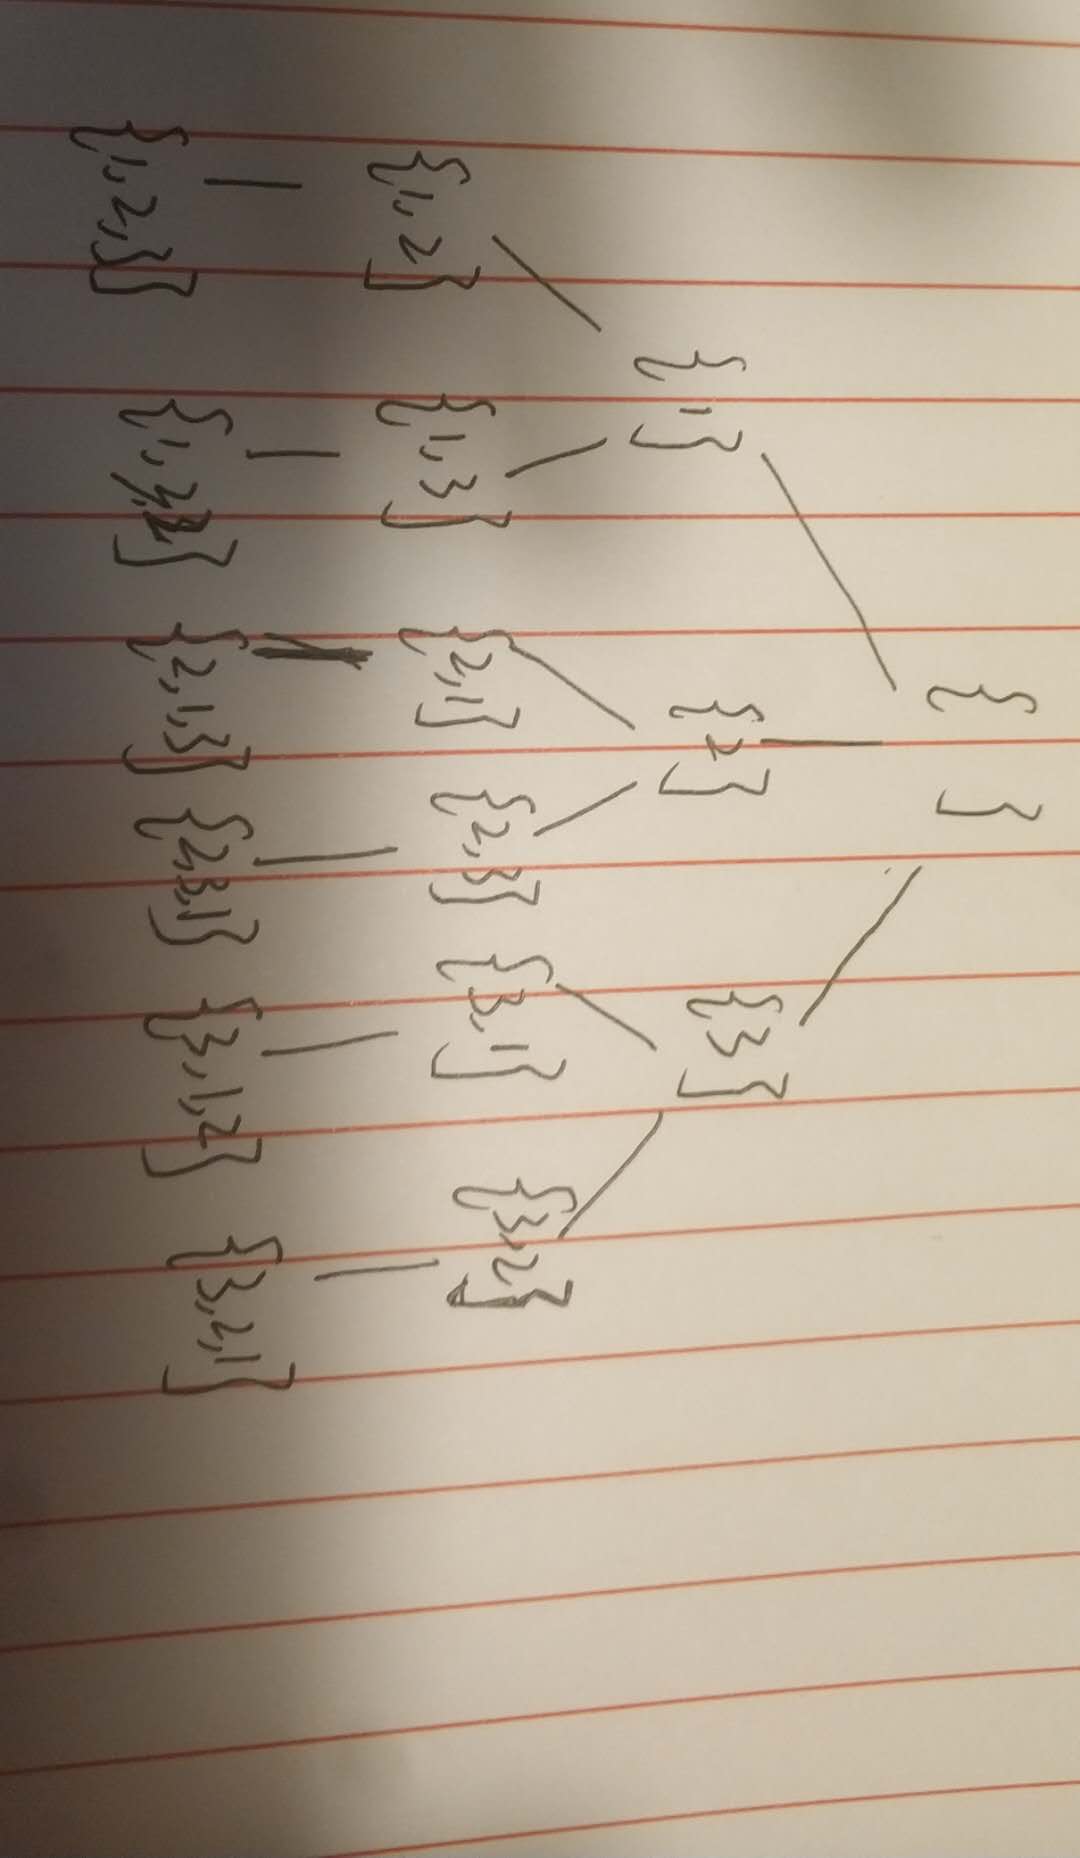 { }
{1} {2} {3}
{1,2} {1,3} {2,1} {2,3} {3,1} {3,2}
{1,2,3} {1,3,2} {2,1,3} {2,3,1} {3,1,2} {3,2,1}